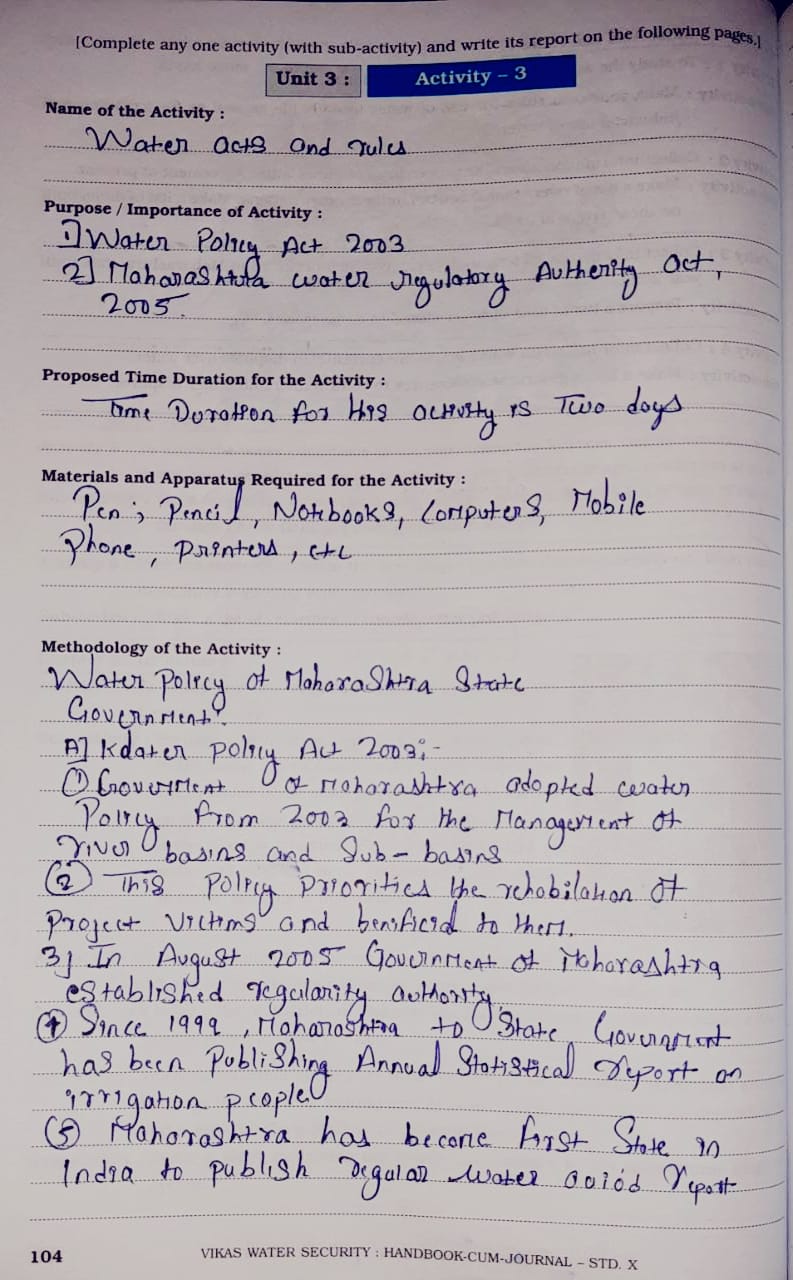 [Complete any one activity (with sub-activity) and write its report on the following pages.]
Unit 3 :
Activity – 3
Name of the Activity :
Water acts and rules
Purpose / Importance of Activity :
1] Water Policy Act 2003
2] Maharashtra water regulatory Authority act,
2005.
Proposed Time Duration for the Activity :
Time Duration for this activity is Two days
Materials and Apparatus Required for the Activity :
Pen, Pencil, Notebooks, Computers, Mobile
Phone, printers, etc
Methodology of the Activity :
Water policy of Maharashtra State
Government.
A] Water policy Act 2003:-
① Goverment of Maharashtra adopted water
Policy from 2003 for the Management of
river basins and Sub-basins
② This policy priorities the rehabilation of
project victims and benificial to them.
3] In August 2005 Government of Maharashtra
established regularity authority.
④ Since 1999, Maharashtra to State Government
has been Publishing Annual Statistical report on
irrigation people
⑤ Maharashtra has become first State in
India to publish regular water report
104
VIKAS WATER SECURITY : HANDBOOK-CUM-JOURNAL – STD. X